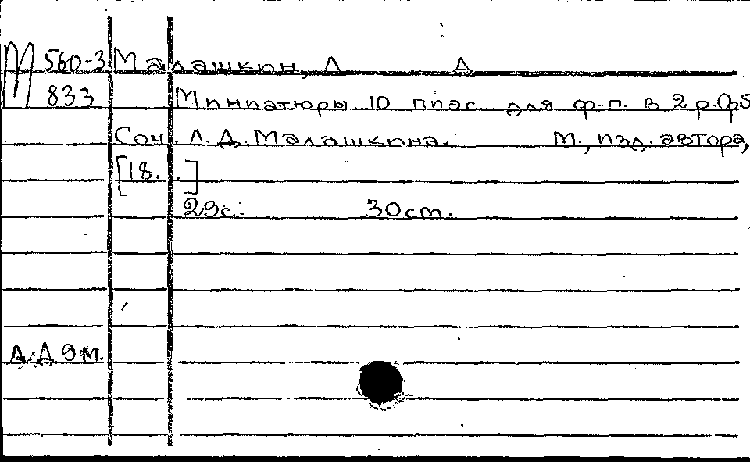 М 560-3 Малашкин, Л Д
833 Миниатюры 10 пиес для ф-п. в 2 р. Ор5
Соч. Л.Д. Малашкина. М., изд. автора,
[18. .]
29с. 30cm.